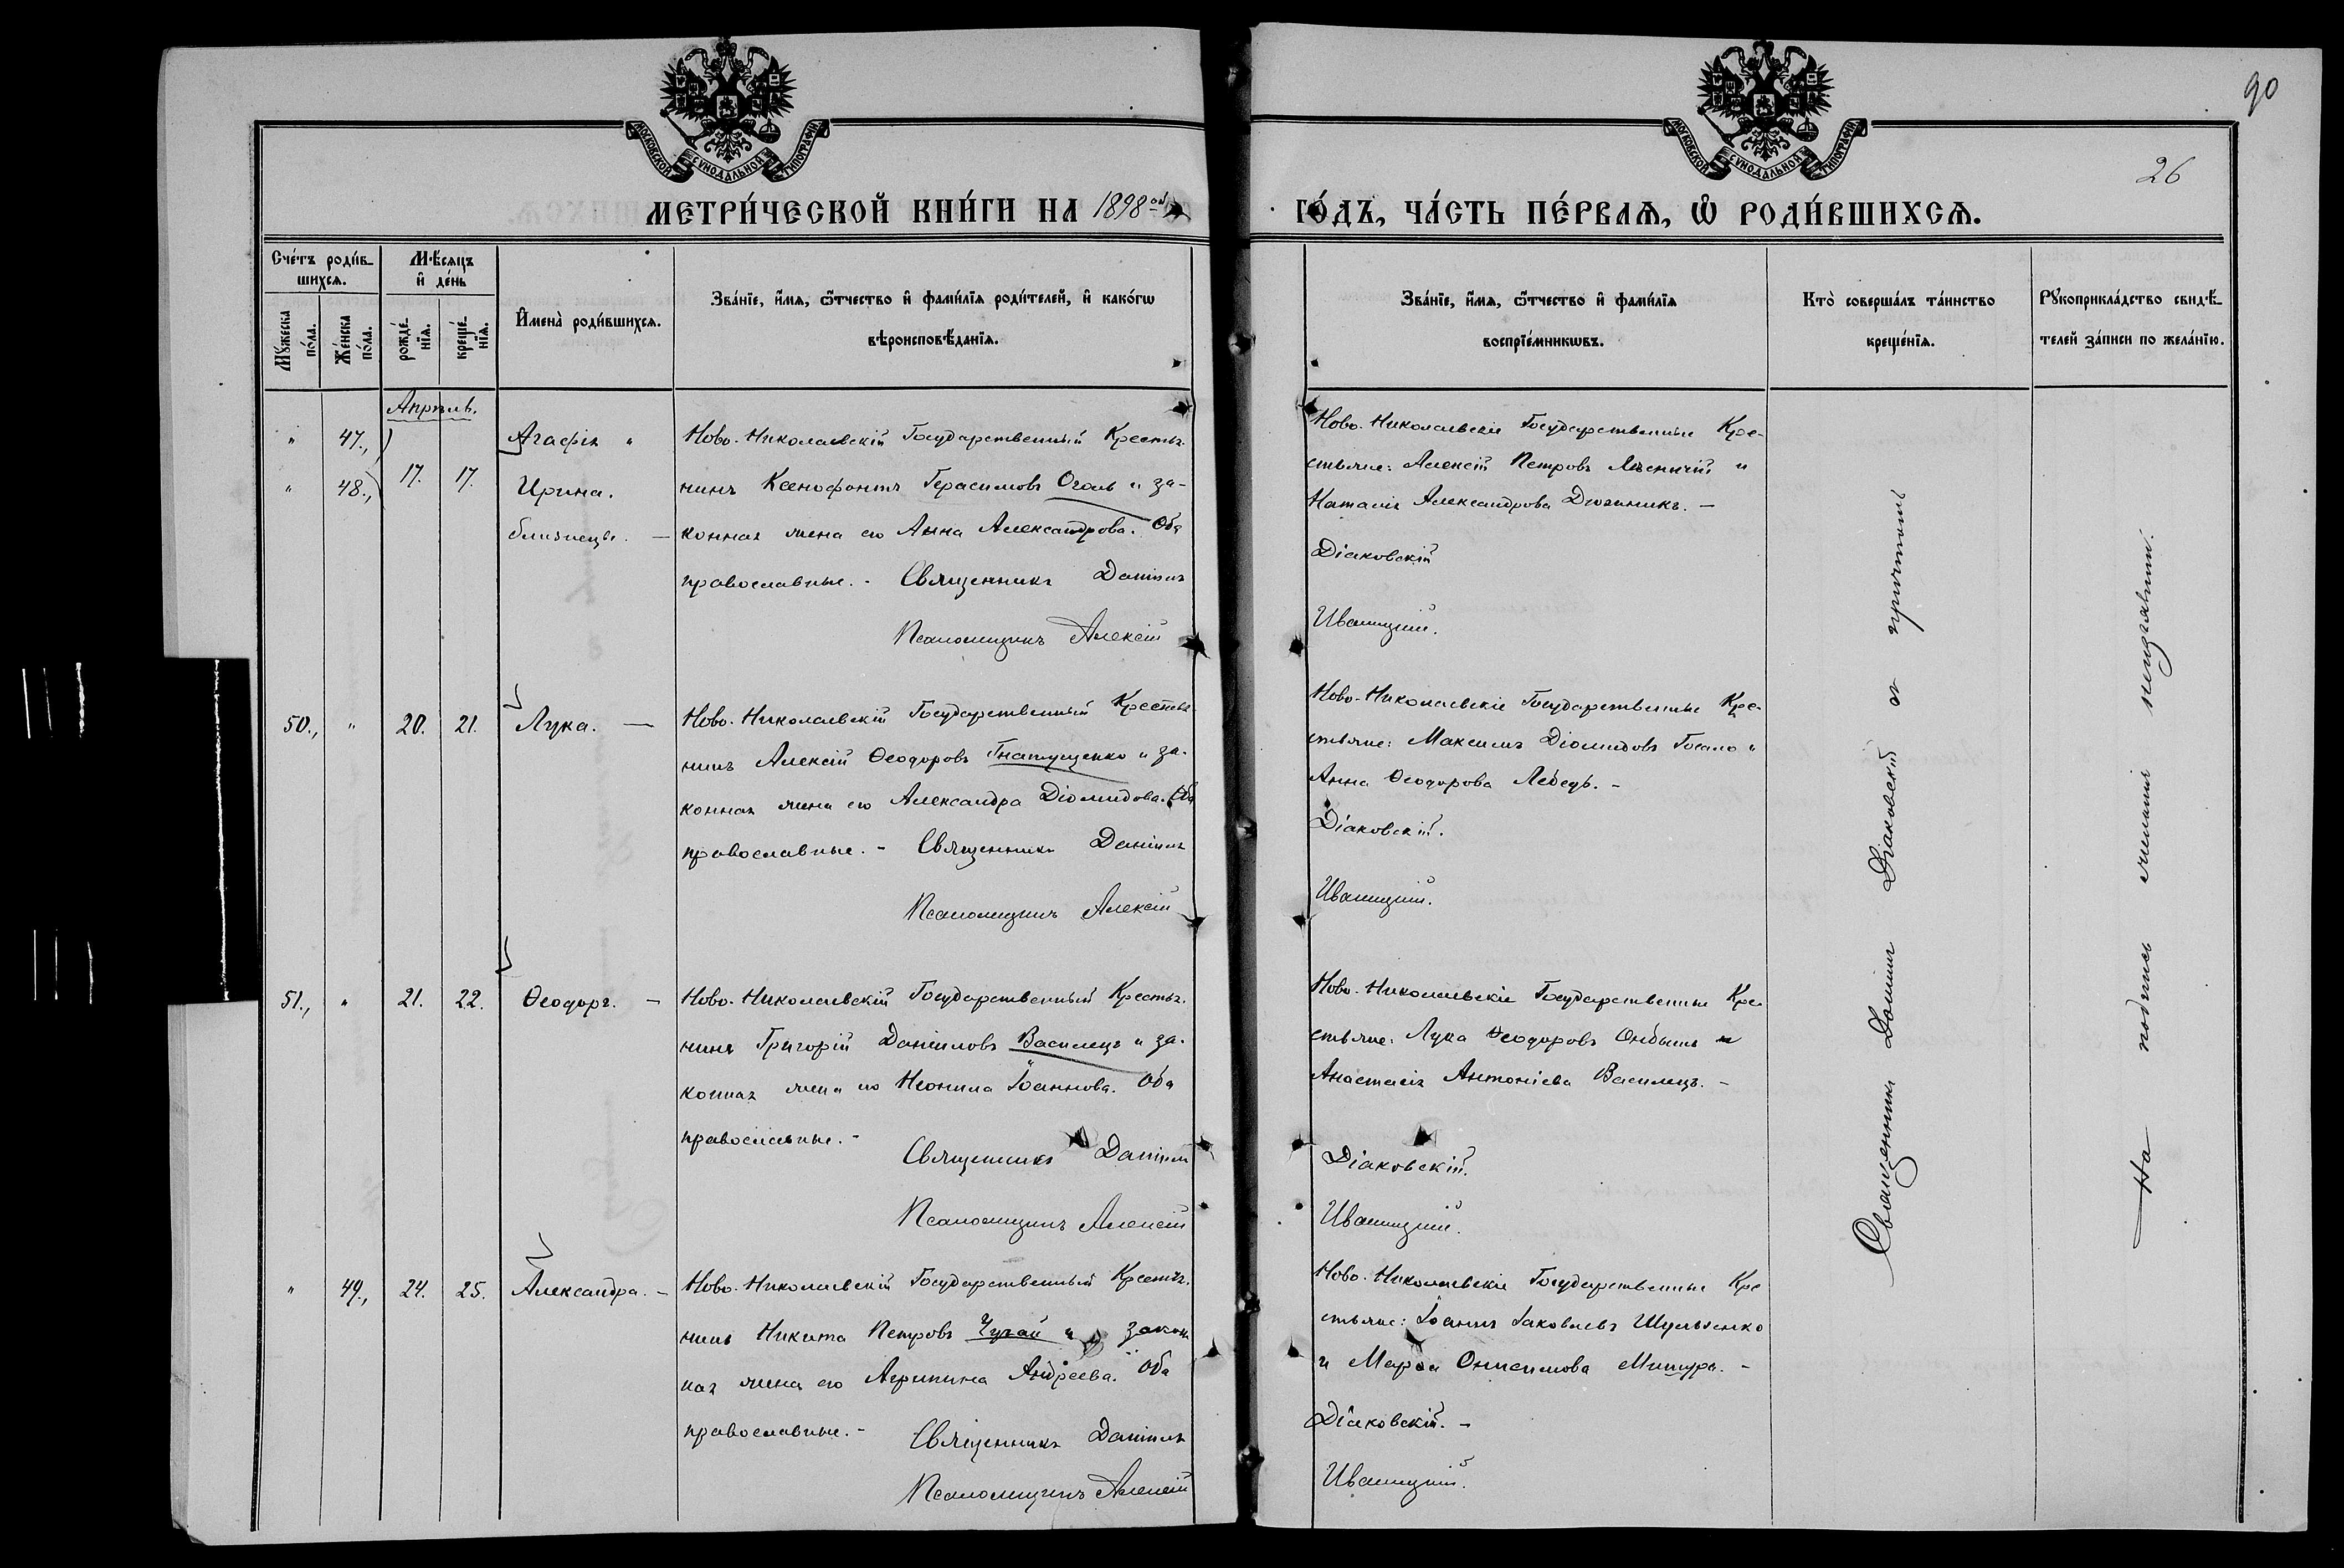 90
26
МОСКОВСКОЙ СУНОДАЛЬНОЙ ТИПОГРАФІИ
МОСКОВСКОЙ СУНОДАЛЬНОЙ ТИПОГРАФІИ
МЕТРИ́ЧЕСКОЙ КНИ́ГИ НА 1898ой ГО́ДЪ, ЧА́СТЬ ПЕ́РВАѦ, Ѡ҆ РОДИ́ВШИХСѦ.
Сче́тъ роди́в-
шихсѧ.
Мꙋ́жеска
по́ла.
Же́нска
по́ла.
Мѣ́сѧцъ
и҆ де́нь
рожде́-
нїѧ.
креще́-
нїѧ.
И҆мена̀ роди́вшихсѧ.
Зва́нїе, и҆́мѧ, ѻ҆́тчество и҆ фами́лїѧ роди́телей, и҆ како́гѡ
вѣроисповѣ́данїѧ.
Зва́нїе, и҆́мѧ, ѻ҆́тчество и҆ фами́лїѧ
воспрїе́мникѡвъ.
Кто̀ соверша́лъ та́инство
креще́нїѧ.
Рꙋкоприкла́дство свидѣ́-
телей за́писи по жела́нїю.
Апрѣль.
" 47.,
" 48., 17. 17.
Агафія "
Ирина.
близнецы. —
Ново-Николаевскій Государственный Крестья-
нинъ Ксенофонтъ Герасимовъ Оголь и за-
конная жена его Анна Александрова. Оба
православные. - Священникъ Даніилъ
Псаломщикъ Алексій
Ново-Николаевскіе Государственные Кре-
стьяне: Алексій Петровъ и
Наталія Александрова -
Діаковскій
Иваницкій.
50., " 20. 21. Лука. —
Ново-Николаевскій Государственный Крестья-
нинъ Алексій Ѳеодоровъ Гнатущенко и за-
конная жена его Александра Діомидова. Оба
православные. - Священникъ Даніилъ
Псаломщикъ Алексій
Ново-Николаевскіе Государственные Кре-
стьяне: Максимъ Діомидовъ и
Анна Ѳеодорова Лебедь. -
Діаковскій.
Иваницкій.
51., " 21. 22. Ѳеодоръ. —
Ново-Николаевскій Государственный Крестья-
нинъ Григорій Даніиловъ Василецъ и за-
конная жена его Неонила Іоаннова. Оба
православные. -
Священникъ Даніилъ
Псаломщикъ Алексій
Ново-Николаевскіе Государственные Кре-
стьяне: Лука Ѳеодоровъ и
Анастасія Антоніева Василецъ. -
Діаковскій.
Иваницкій.
" 49., 24. 25. Александра. —
Ново-Николаевскій Государственный Крестья-
нинъ Никита Петровъ Чугай и закон-
ная жена его Агрипина Андреева. Оба
православные. -
Священникъ Даніилъ
Псаломщикъ Алексій
Ново-Николаевскіе Государственные Кре-
стьяне: Іоаннъ Іаковлевъ Шульженко
и Марѳа Онисимова -
Діаковскій. -
Иваницкій.
Священникъ Даніилъ Діаковскій съ причтомъ
На подпись желанія неизъявили.